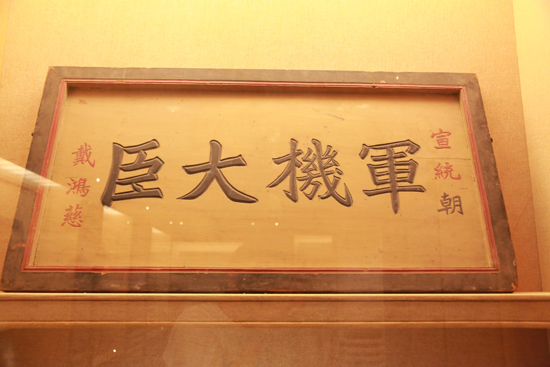 宣統朝
軍機大臣
戴鴻慈